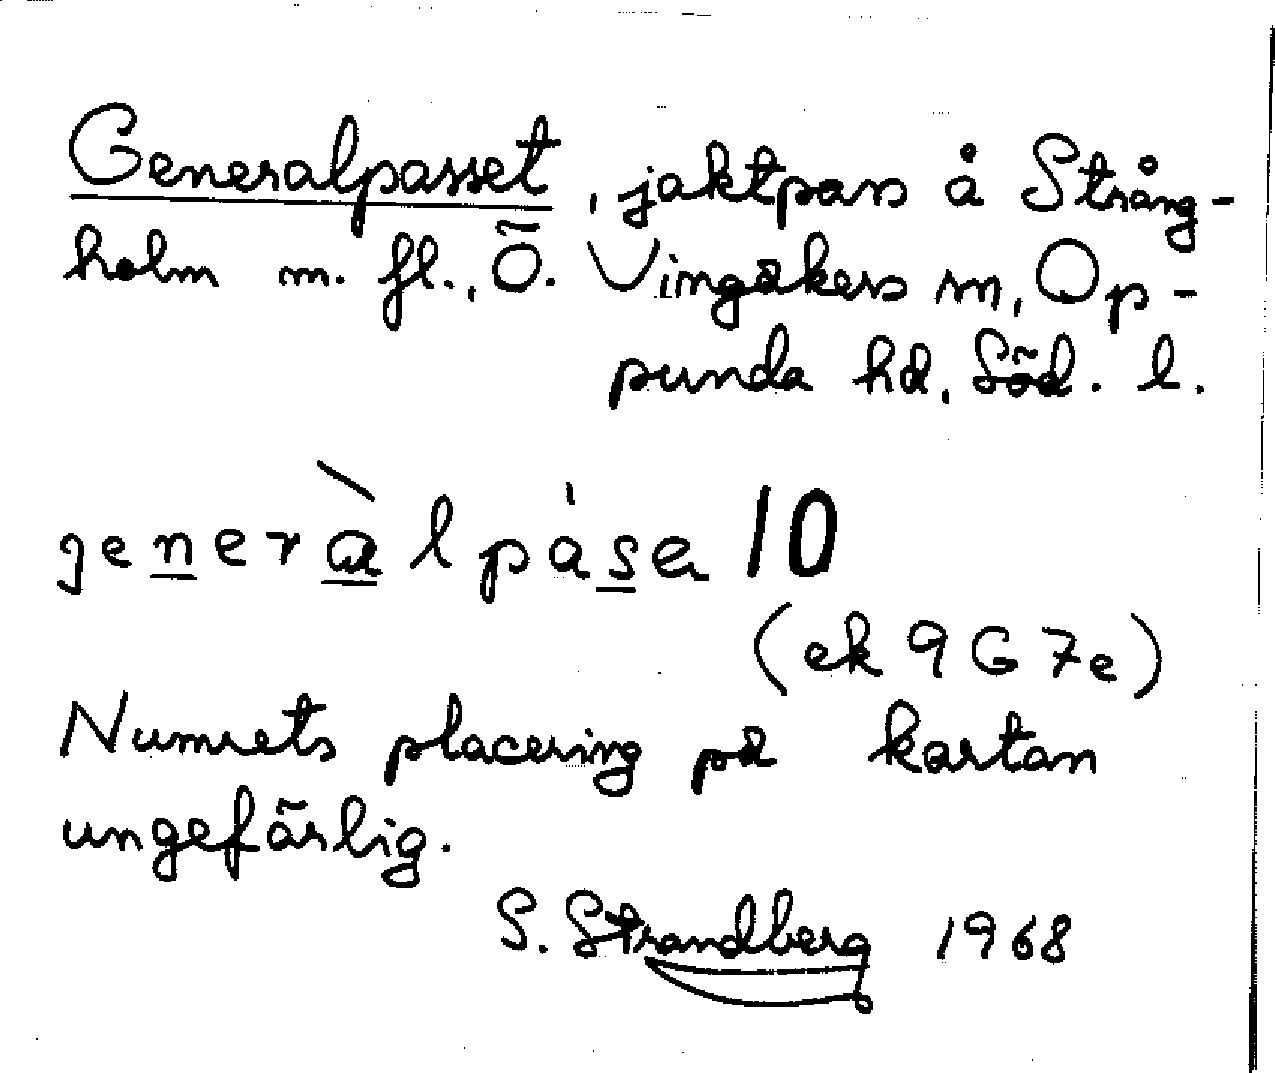 Generalpasset, jaktpass å Strång-
holm m. fl., Ö. Vingåkers sn, Op-
punda hd, Söd. l.
generàlpása 10
(ek 9G7e)
Numrets placering på kartan
ungefärlig.
S. Strandberg 1968